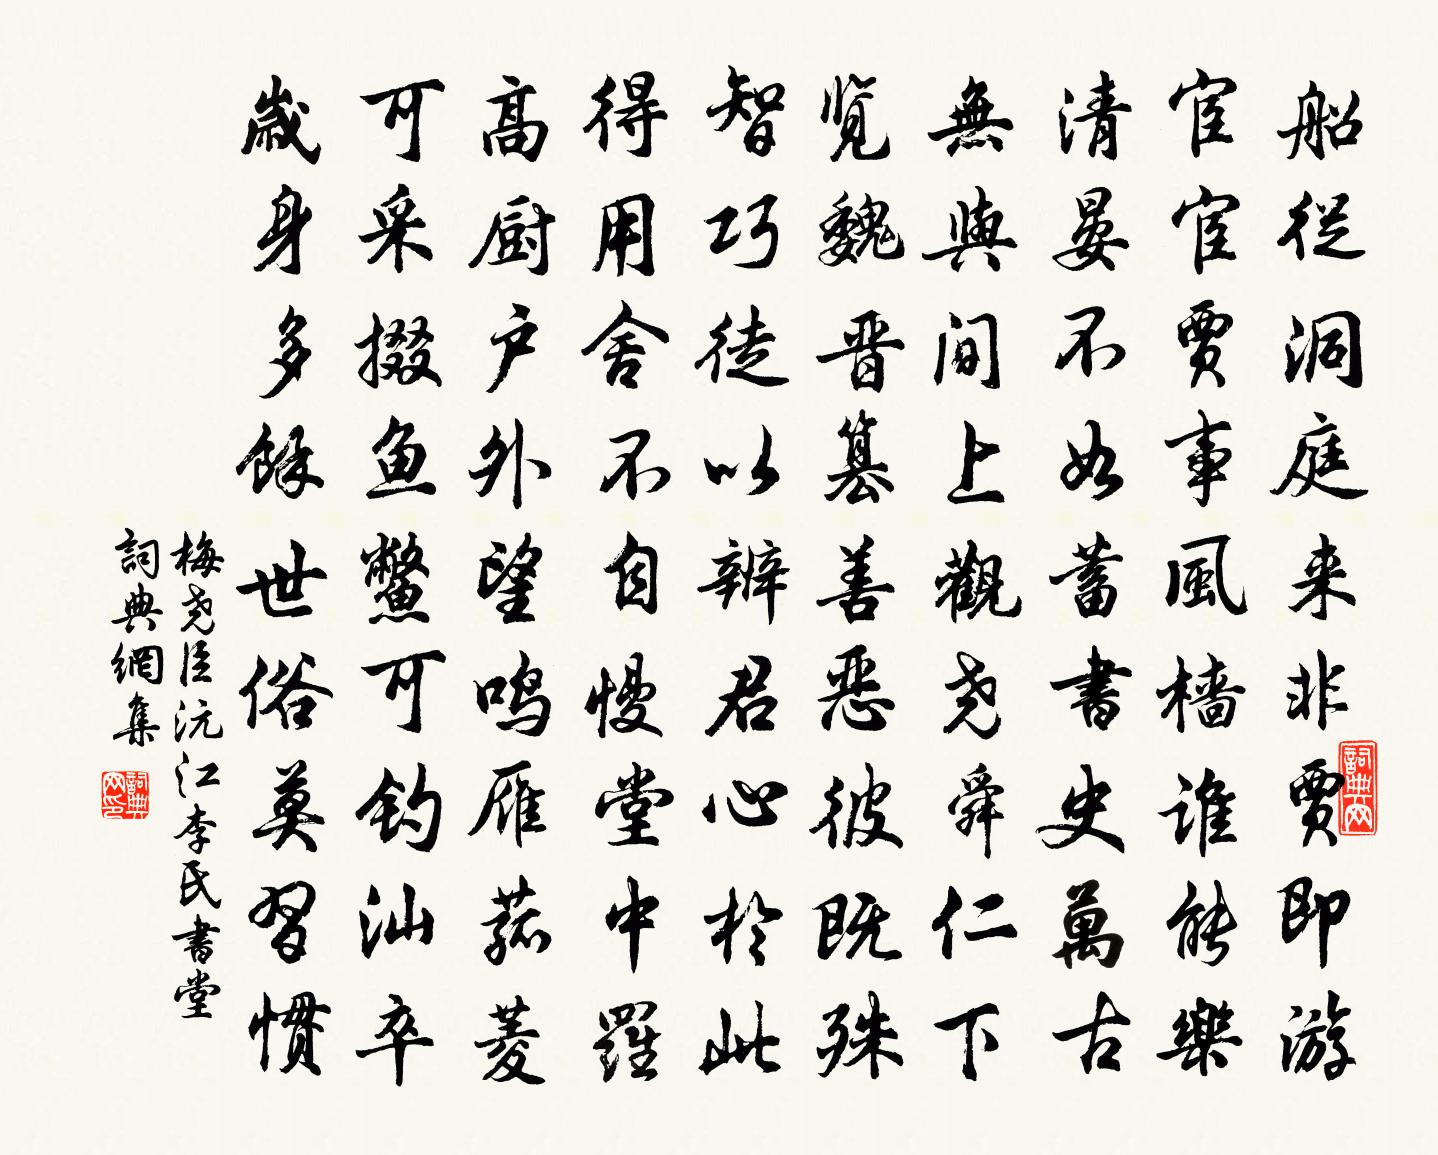 船從洞庭来非賈即游
宦宦賈事風檣誰能樂
清晏不如蓄書史萬古
無與間上觀尧舜仁下
覽魏晋篡善惡彼既殊
智巧徒以辨君心於此
得用舍不自慢堂中羅
高厨户外望鸣雁菰菱
可采掇鱼鱉可釣汕卒
歲身多餘世俗莫習慣
梅尧臣沅江李氏書堂
詞典網集
詞典网
詞典网印